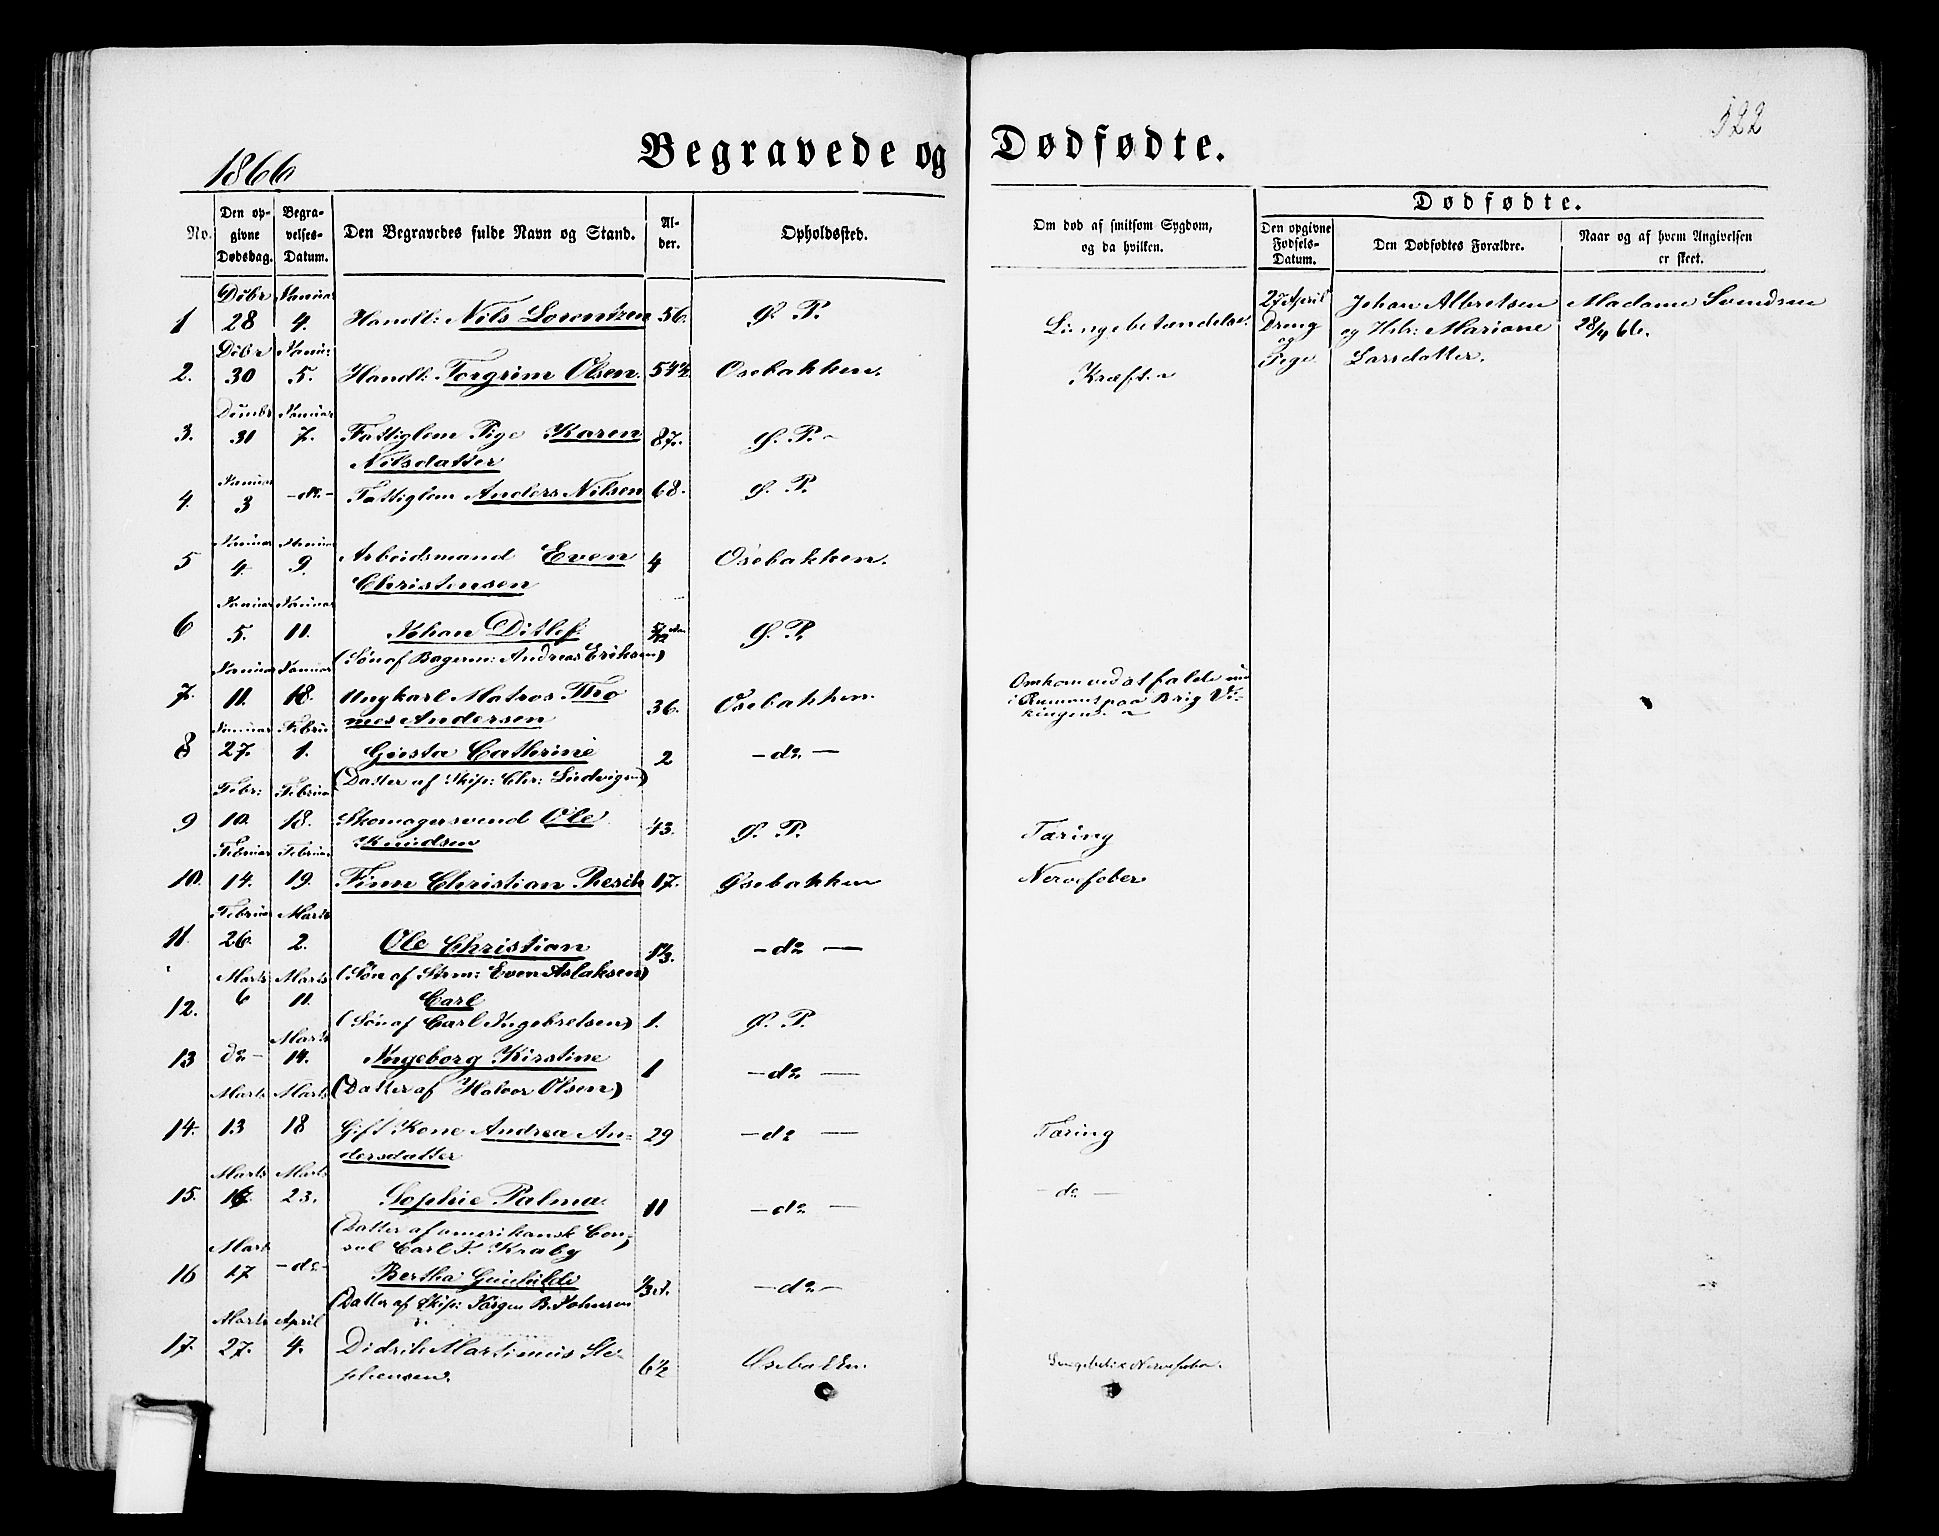 322
1866
Begravede og Dødfødte.
No.
Den op-
givne
Dødsdag.
Begra-
velses-
Datum.
Den Begravedes fulde Navn og Stand.
Al-
der.
Opholdssted.
Om død af smitsom Sygdom,
og da hvilken.
Dødfødte.
Den opgivne
Fødsels-
Datum.
Den Dødfødtes Forældre.
Naar og af hvem Angivelsen
er skeet.
1 Dcbr 28 Januar 4. Handl: Nils Lorentzen 56. Ø. P. Lungebetændelse.
27 April Dreng og Pige
Johan Albretsen
og Hst: Mariane
Larsdatter.
Madame Svendsen
28/4 66.
2. Dcbr 30 Janu: 5. Handl: Torgrim Olsen. 54½ Osebakken. Kræft
3. 30 Januar 7. Fattiglem Pige Karen 87. Ø. P.
Nilsdatter
4. Januar 3 -do- Fattiglem Anders Nilsen 68. Ø. P.
5 Januar 4. Januar 9. Arbeidsmand Even 4 Osebakken.
Christensen
6 Januar 5. Januar 11. Johan Ditlef Ø. P.
(Søn af Bagerm: Andreas Eriksen)
7. Januar 11. Januar 18. Ungkarl Matros Tho 36. Osebakken.
mas Andersen
Omkom ved at falde ned
i Rummet paa Brig Vi-
kingen.
8 Januar 27. Februar 1. Catherine 2 -do-
(Datter af Skip: Chr: Ludvigsen)
9 Febr: 10. Februar 18. Skomagersvend Ole 43. Ø. P. Tæring
Knudsen
10. Februar 14. Februar 19. Finn Christian Resch 17. Osebakken Nervefeber
11. Februar 26. Marts 2. Ole Christian 1⅓. -do-
(Søn af Stm: Even Aslaksen)
12. Marts 6 Marts 11. Carl 1. Ø. P.
(Søn af Carl Ingebretsen)
13 do- Marts 14. Ingeborg Kirstine 1 -do-
(Datter af Halvor Olsen)
14. Marts 13 Marts 18 Gift Kone Andrea An- 29 -do- Tæring
dersdatter
15. Marts Marts 23. Sophie Palma. 11 -do- -do-
(Datter af amerikansk Con-
sul Carl F. Kraby)
16 Marts 17 -do- Bertha -do-
(Datter af Skip: Jørgen B. Johnsen
17. Marts 27. April 4. Didrik Martinius Ste- 6½ Osebakken. Nervefeber.
phensen.